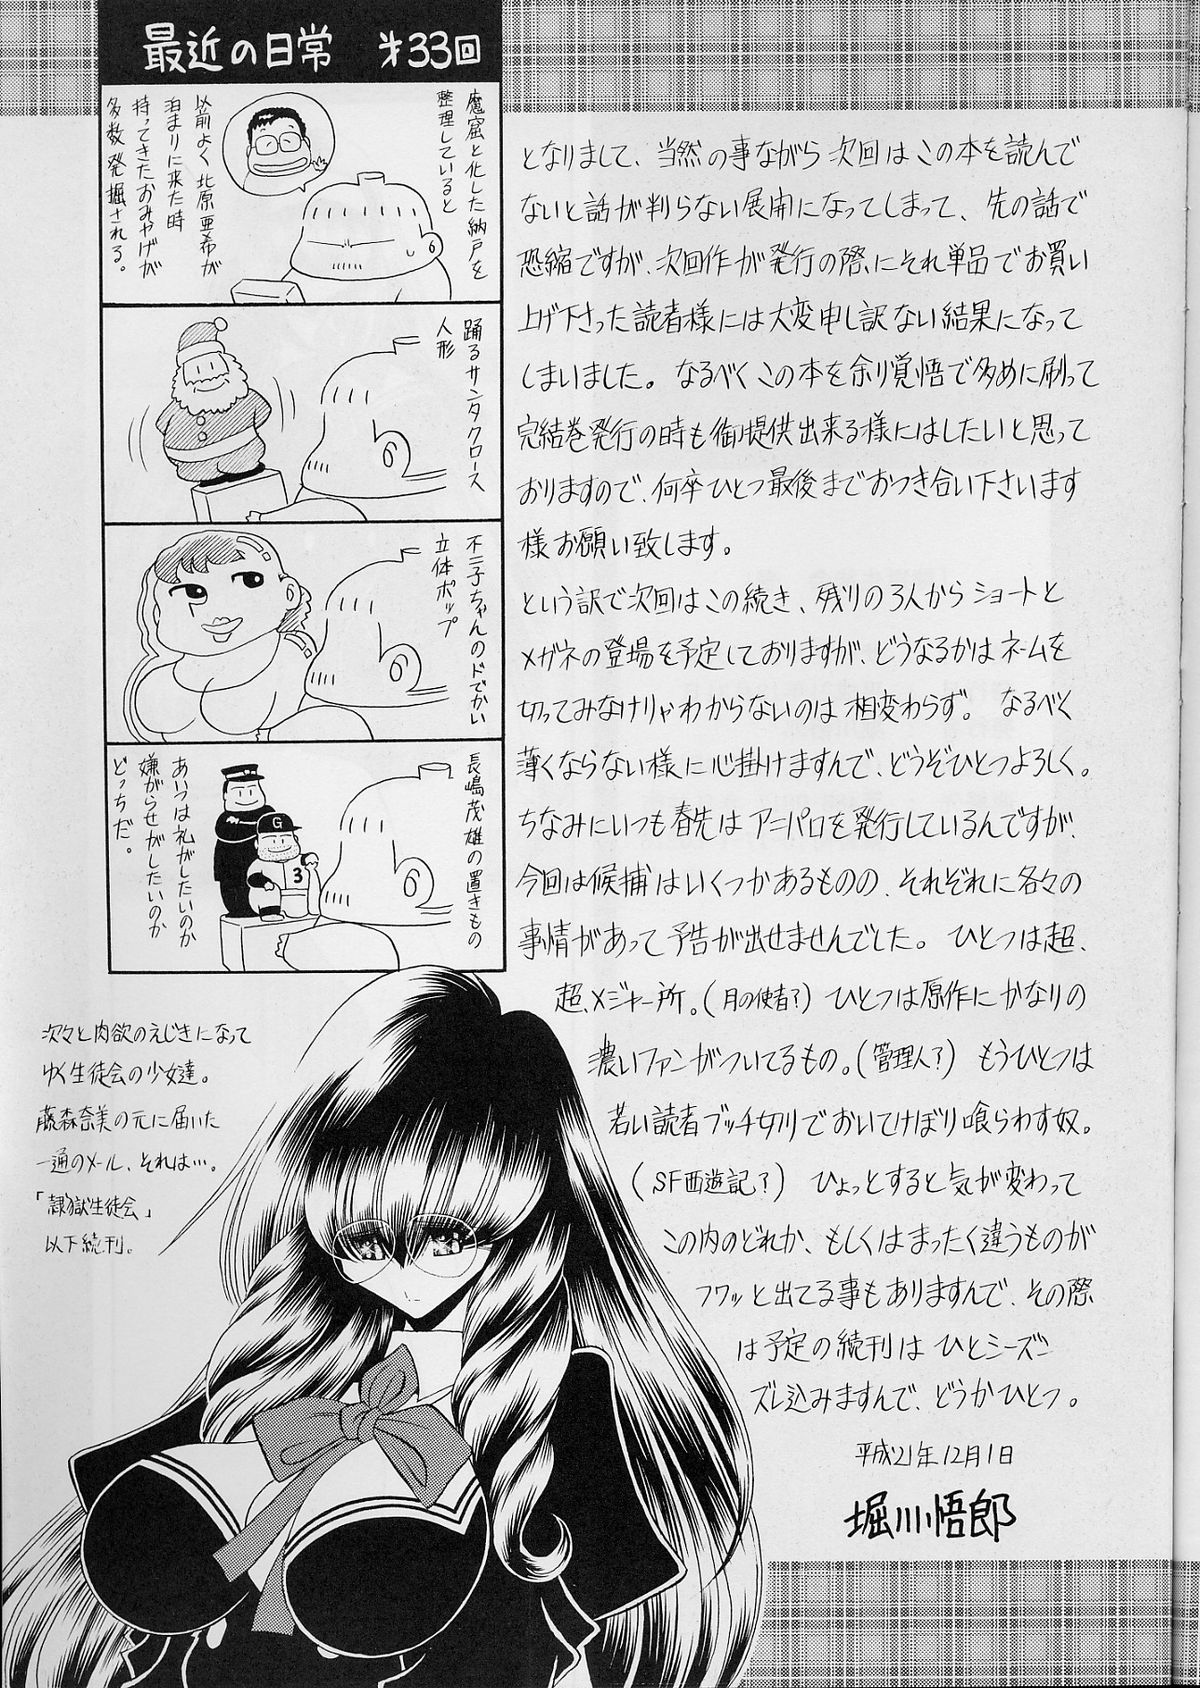 最近の日常 才33回
魔窟と化した納戸を
整理していると
以前よく北原亜希が
泊まりに来た時
持ってきたおみやげが
多数発掘される。
踊るサンタクロース
人形
不二子ちゃんのドでかい
立体ポップ
長嶋茂雄の置きもの
G
3
あいつは礼がしたいのか
嫌がらせがしたいのか
どっちだ。
となりまして、当然の事ながら次回はこの本を読んで
ないと話が判らない展開になってしまって、先の話で
恐縮ですが、次回作が発行の際にそれ単品でお買い
上げ下さった読者様には大変申し訳ない結果になって
しまいました。なるべくこの本を余り覚悟で多めに刷って
完結巻発行の時も御提供出来る様にはしたいと思って
おりますので、何卒ひとつ最後までおつき合い下さいます
様お願い致します。
という訳で次回はこの続き、残りの3人からショートと
メガネの登場を予定しておりますが、どうなるかはネームを
切ってみなけりゃわからないのは相変わらず。なるべく
薄くならない様に心掛けますんで、どうぞひとつよろしく。
ちなみにいつも春先はアニパロを発行しているんですが、
今回は候捕はいくつかあるものの、それぞれに各々の
事情があって予告が出せませんでした。ひとつは超、
超、メジャー所。(月の使者?)ひとつは原作にかなりの
濃いファンがついてるもの。(管理人?)もうひとつは
若い読者ブッチ切りでおいてけぼり喰らわす奴。
(SF西遊記?)ひょっとすると気が変わって
この内のどれか、もしくはまったく違うものが
フワッと出てる事もありますんで、その際
は予定の続刊はひとシーズン
ズレ込みますんで、どうかひとつ。
平成21年12月1日
堀川悟郎
次々と肉欲のえじきになって
ゆく生徒会の少女達。
藤森奈美の元に届いた
一通のメール、それは…。
「隷獄生徒会」
以下続刊。